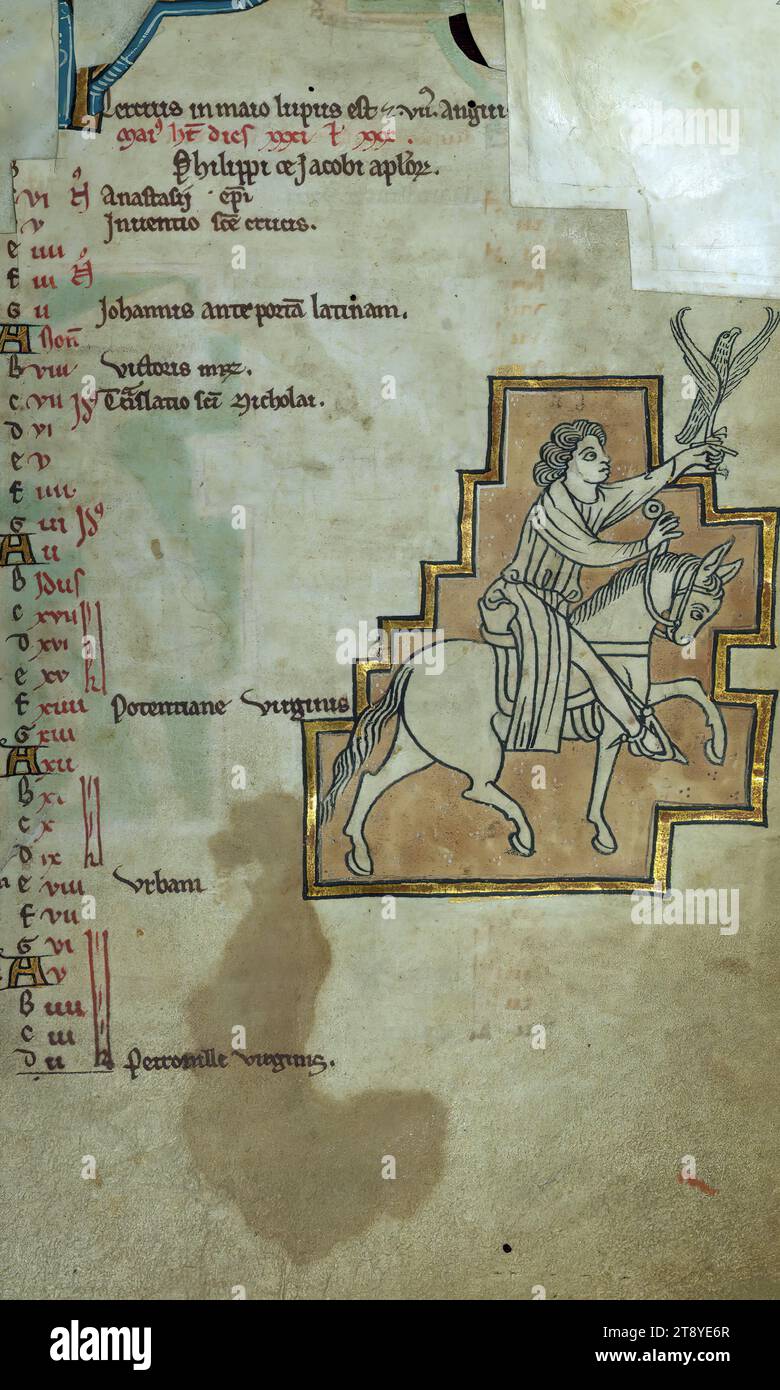 Tercius in maio lupus est & vii9 angui
Mai9 ht dies xxxi l xxx.
Philippi & Jacobi aplor.
vi Anastasij epi
v Inventio sce crucis.
e iiii
f iii
g ii Johannis ante portā latinam.
A Non
b viii Victoris mr.
c vii Id9 Translatio sci Nicholai.
d vi
e v
f iiii
g iii Id9
A ii
b Idus
c xvii
d xvi
e xv
f xiiii Potentiane virginis
g xiii
A xii
b xi
c x
d ix
e viii Vrbani
f vii
g vi
A v
b iiii
c iii
d ii Petronille virginis.
alamy
Image ID: 2T8YE6R
www.alamy.com